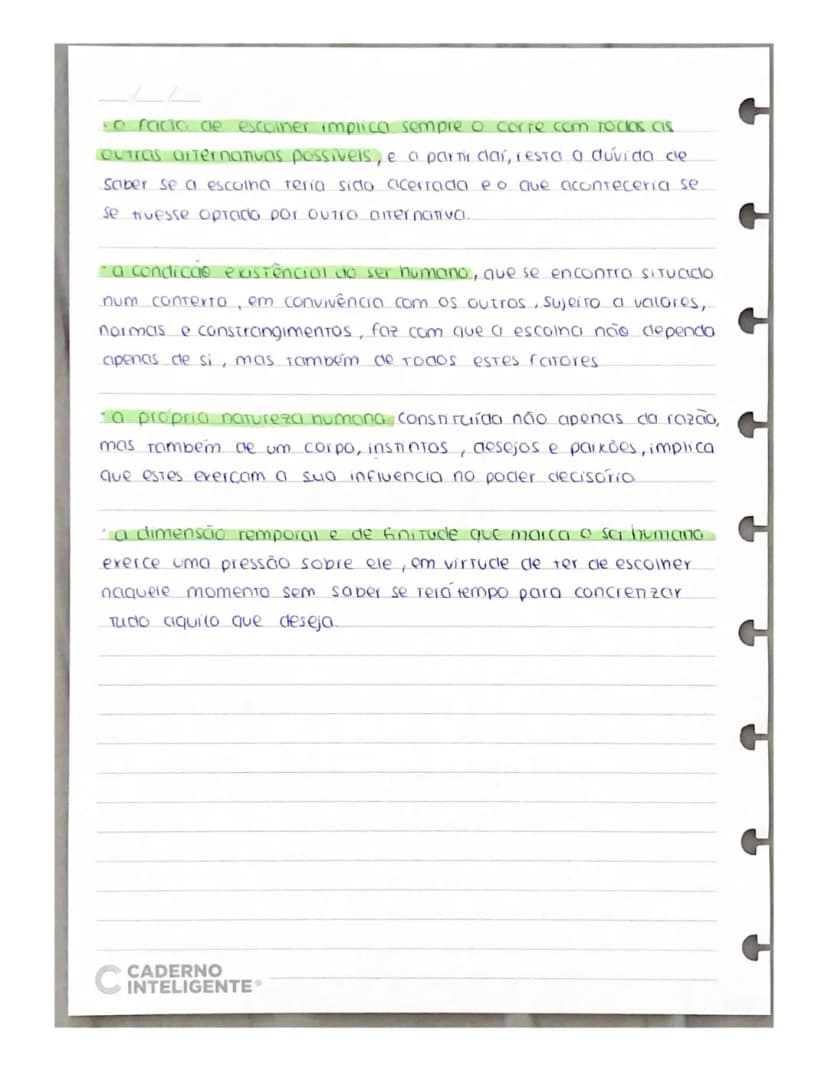 · o facto de escolher implica sempre o corte com todas as
outras alternativas possíveis, e a partir daí, resta a dúvida de
saber se a escolha teria sido acertada e o que aconteceria se
se tivesse optado por outra alternativa.
· a condição existencial do ser humano, que se encontra situado
num contexto, em convivência com os outros, sujeito a valores,
normas e constrangimentos, faz com que a escolha não dependa
apenas de si, mas também de todos estes fatores
· a própria natureza humana, constituída não apenas da razão,
mas também de um corpo, instintos, desejos e paixões, implica
que estes exerçam a sua influencia no poder decisório
· a dimensão temporal e de finitude que marca o ser humano
exerce uma pressão sobre ele, em virtude de ter de escolher
naquele momento sem saber se terá tempo para concretizar
tudo aquilo que deseja.
CADERNO
INTELIGENTE®